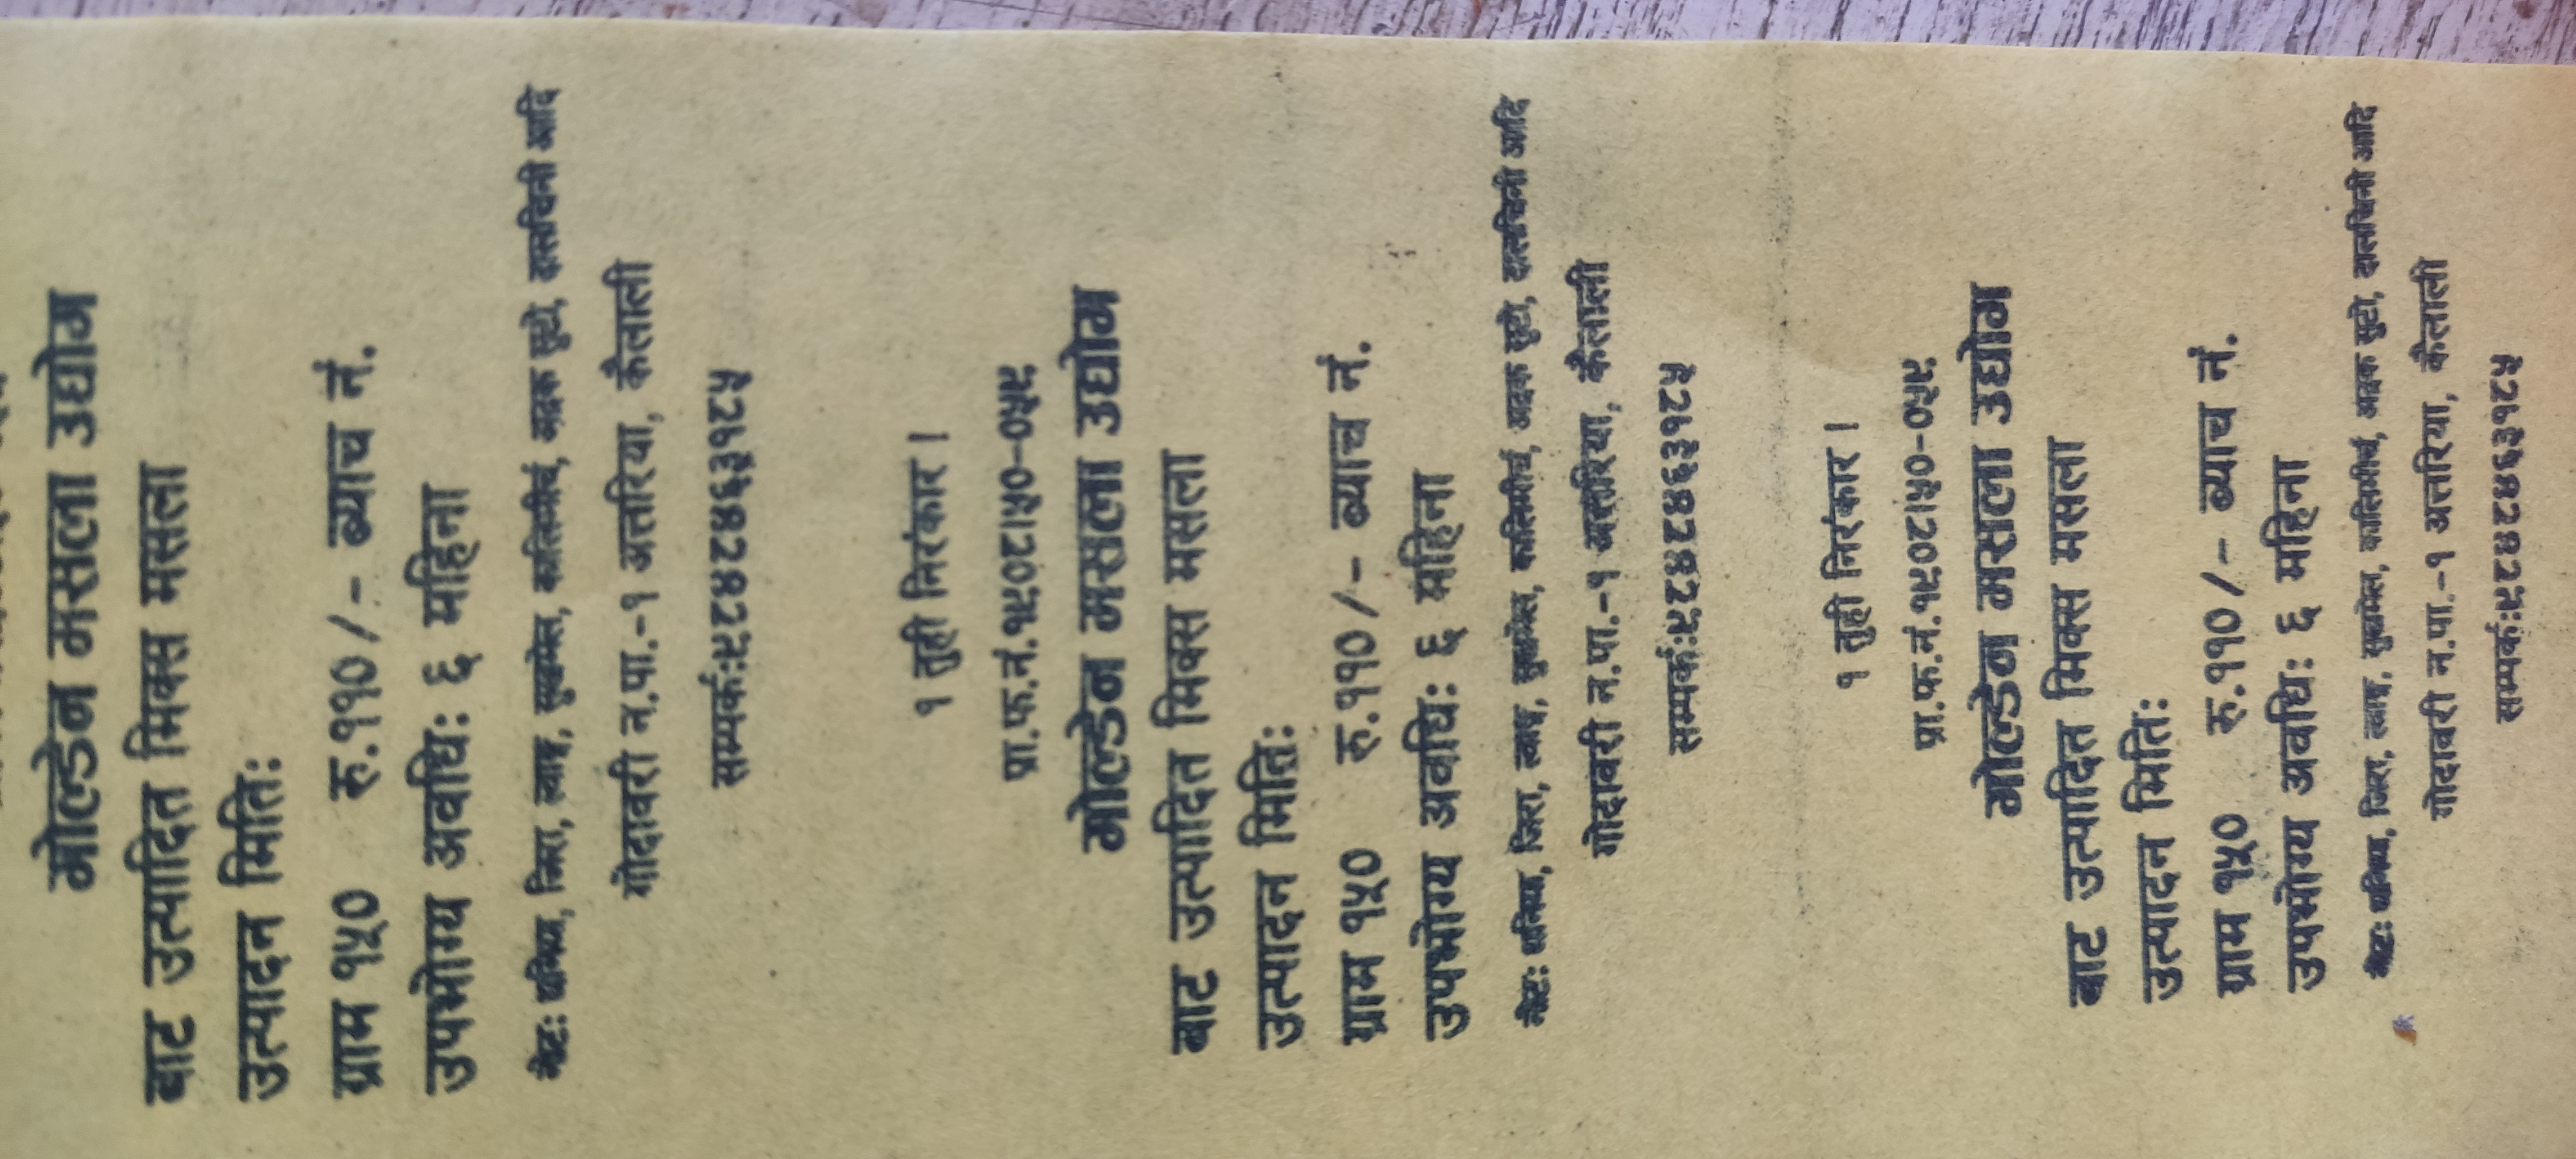 गोल्डेन मसला उद्योग
बाट उत्पादित मिक्स मसला
उत्पादन मितिः
ग्राम १५० रु.११०/- ब्याच नं.
उपभोग्य अवधिः ६ महिना
नोटः धनिया, जिरा, ल्वाङ्ग, सुकमेल, कालिमीर्च, अद्रक सुठो, दालचिनी आदि
गोदावरी न.पा.-१ अत्तरिया, कैलाली
सम्पर्कः९८४८४६३१८५
१ तुही निरंकार ।
प्रा.फ.नं.१९०८।५०-०५९
गोल्डेन मसला उद्योग
बाट उत्पादित मिक्स मसला
उत्पादन मितिः
ग्राम १५० रु.११०/- ब्याच नं.
उपभोग्य अवधिः ६ महिना
नोटः धनिया, जिरा, ल्वाङ्ग, सुकमेल, कालिमीर्च, अद्रक सुठो, दालचिनी आदि
गोदावरी न.पा.-१ अत्तरिया, कैलाली
सम्पर्कः९८४८४६३१८५
१ तुही निरंकार ।
प्रा.फ.नं.१९०८।५०-०५९
गोल्डेन मसला उद्योग
बाट उत्पादित मिक्स मसला
उत्पादन मितिः
ग्राम १५० रु.११०/- ब्याच नं.
उपभोग्य अवधिः ६ महिना
नोटः धनिया, जिरा, ल्वाङ्ग, सुकमेल, कालिमीर्च, अद्रक सुठो, दालचिनी आदि
गोदावरी न.पा.-१ अत्तरिया, कैलाली
सम्पर्कः९८४८४६३१८५